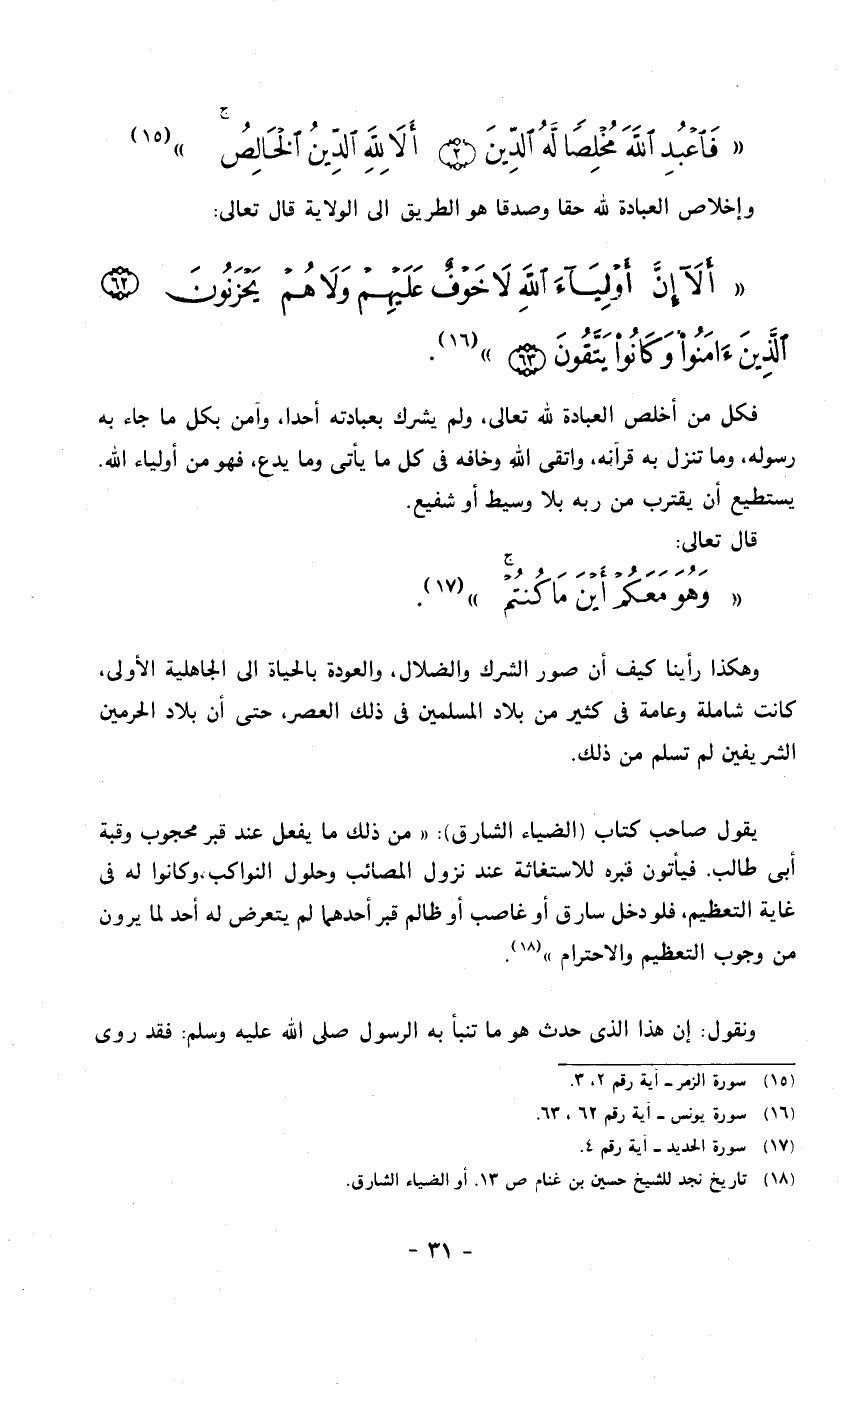 « فَٱعْبُدِ ٱللَّهَ مُخْلِصًا لَّهُ ٱلدِّينَ ﴿٢﴾ أَلَا لِلَّهِ ٱلدِّينُ ٱلْخَالِصُ ۚ » (١٥)
وإخلاص العبادة لله حقا وصدقا هو الطريق الى الولاية قال تعالى:
« أَلَآ إِنَّ أَوْلِيَآءَ ٱللَّهِ لَا خَوْفٌ عَلَيْهِمْ وَلَا هُمْ يَحْزَنُونَ ﴿٦٢﴾
ٱلَّذِينَ ءَامَنُوا۟ وَكَانُوا۟ يَتَّقُونَ ﴿٦٣﴾ » (١٦).
فكل من أخلص العبادة لله تعالى، ولم يشرك بعبادته أحدا، وآمن بكل ما جاء به
رسوله، وما تنزل به قرآنه، واتقى الله وخافه فى كل ما يأتى وما يدع، فهو من أولياء الله.
يستطيع أن يقترب من ربه بلا وسيط أو شفيع.
قال تعالى:
« وَهُوَ مَعَكُمْ أَيْنَ مَا كُنتُمْ ۚ » (١٧).
وهكذا رأينا كيف أن صور الشرك والضلال، والعودة بالحياة الى الجاهلية الأولى،
كانت شاملة وعامة فى كثير من بلاد المسلمين فى ذلك العصر، حتى أن بلاد الحرمين
الشريفين لم تسلم من ذلك.
يقول صاحب كتاب (الضياء الشارق): « من ذلك ما يفعل عند قبر محجوب وقبة
أبى طالب. فيأتون قبره للاستغاثة عند نزول المصائب وحلول النواكب، وكانوا له فى
غاية التعظيم، فلو دخل سارق أو غاصب أو ظالم قبر أحدهما لم يتعرض له أحد لما يرون
من وجوب التعظيم والاحترام » (١٨).
ونقول: إن هذا الذى حدث هو ما تنبأ به الرسول صلى الله عليه وسلم: فقد روى
(١٥) سورة الزمر ـ آية رقم ٢، ٣.
(١٦) سورة يونس ـ آية رقم ٦٢ ، ٦٣.
(١٧) سورة الحديد ـ آية رقم ٤.
(١٨) تاريخ نجد للشيخ حسين بن غنام ص ١٣. أو الضياء الشارق.
- ٣١ -